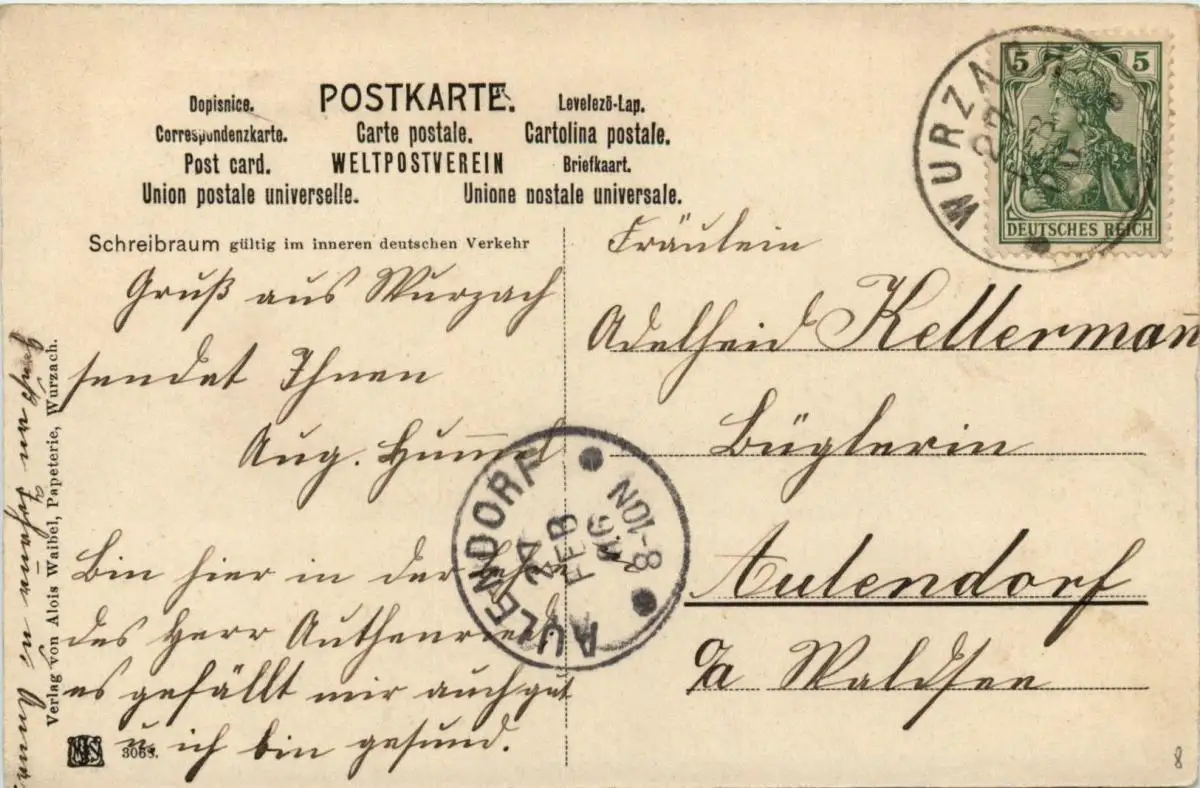 POSTKARTE.
Dopisnice. Levelezö-Lap.
Correspondenzkarte. Carte postale. Cartolina postale.
Post card. WELTPOSTVEREIN Briefkaart.
Union postale universelle. Unione postale universale.
Schreibraum gültig im inneren deutschen Verkehr
Gruß aus Wurzach
sendet Ihnen
Aug. Hummel
Bin hier in der Lehre
des Herr Authenrieth
es gefällt mir auch gut
u. ich bin gesund.
Verlag von Alois Waibel, Papeterie, Wurzach.
3063.
Fräulein
Adelheid Kellerman
Büglerin
Aulendorf
O/A Waldsee
WURZACH
27
FEB
06
5 5
DEUTSCHES REICH
AULENDORF
27
FEB
06
8-10N
8